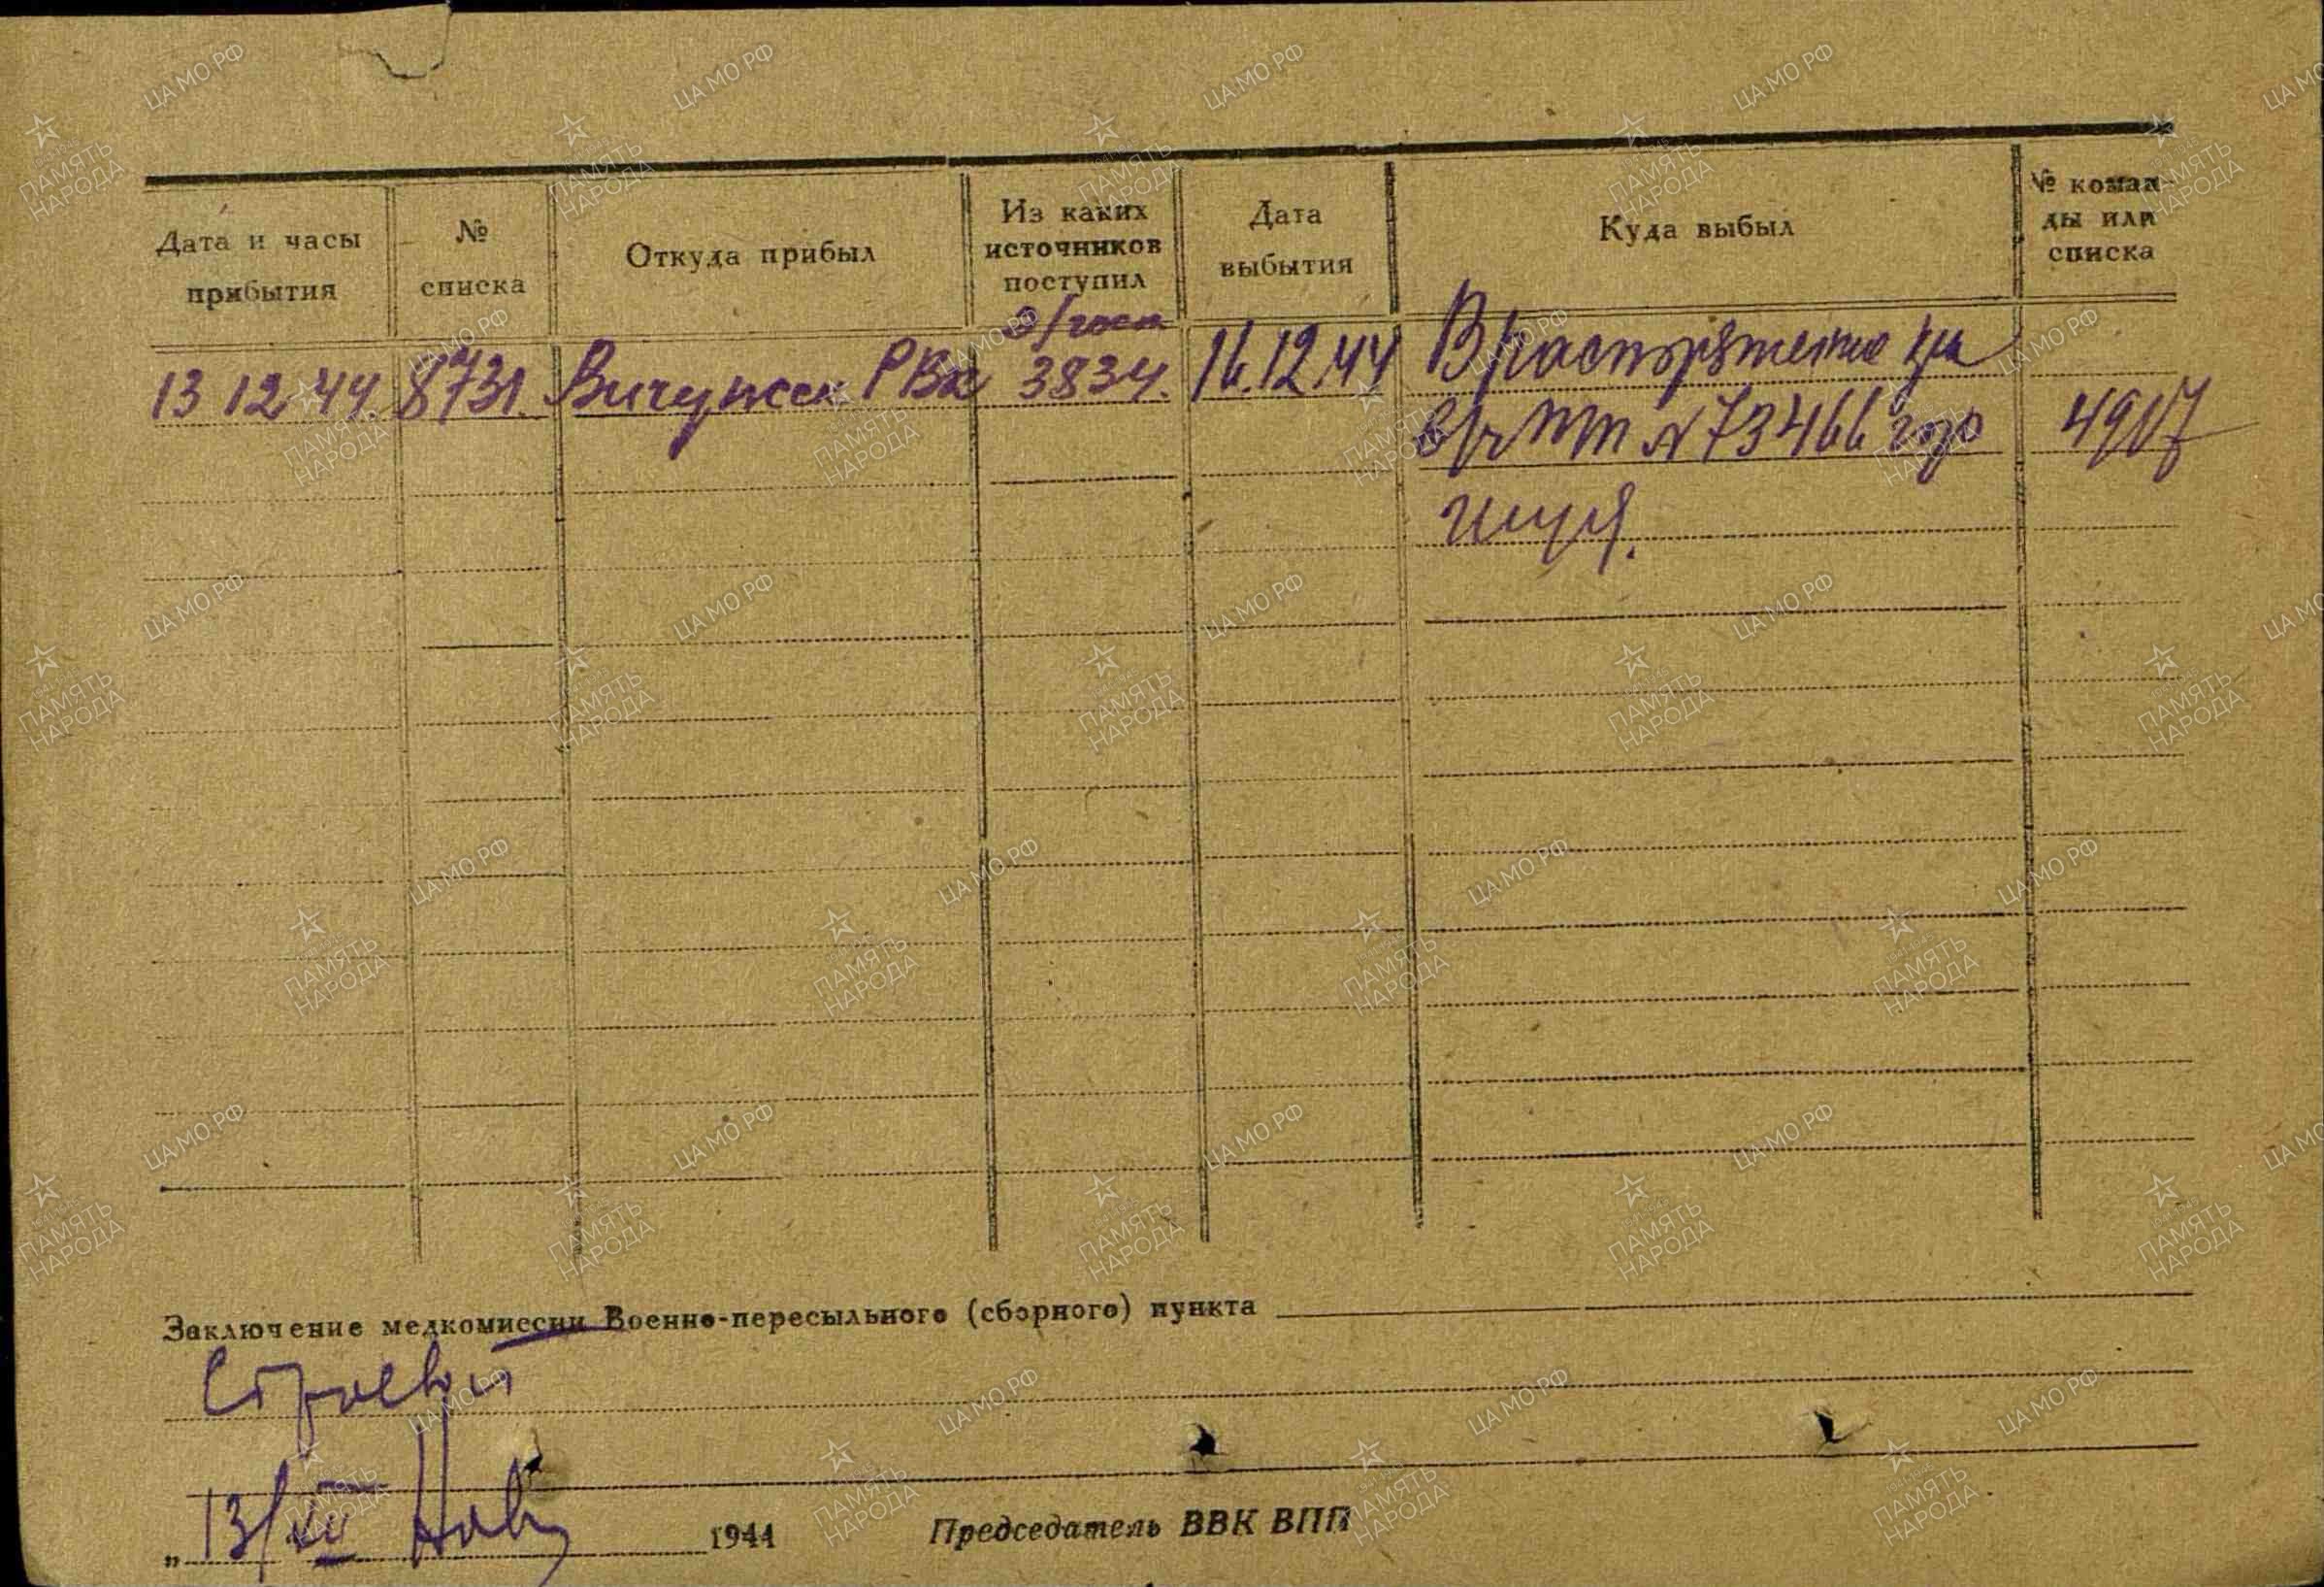 Дата и часы прибытия
№ списка
Откуда прибыл
Из каких источников поступил
Дата выбытия
Куда выбыл
№ команды или списка
э/госп
13 12 44. 8731. Вичужск РВК 3834. 16.12.44 В распоряжение к-ра
в/ч ПП № 73466 гор 4917
Шуя.
Заключение медкомиссии Военно-пересыльного (сборного) пункта
Строевой
„ 13/XII 1944 Председатель ВВК ВПП
ЦА МО РФ
ПАМЯТЬ НАРОДА